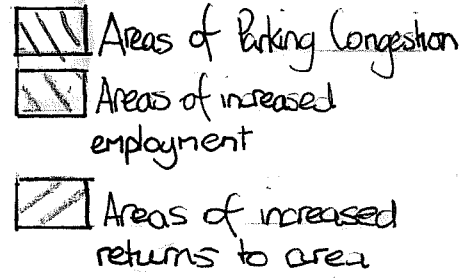 Areas of Parking Congestion
Areas of increased
employment
Areas of increased
returns to area